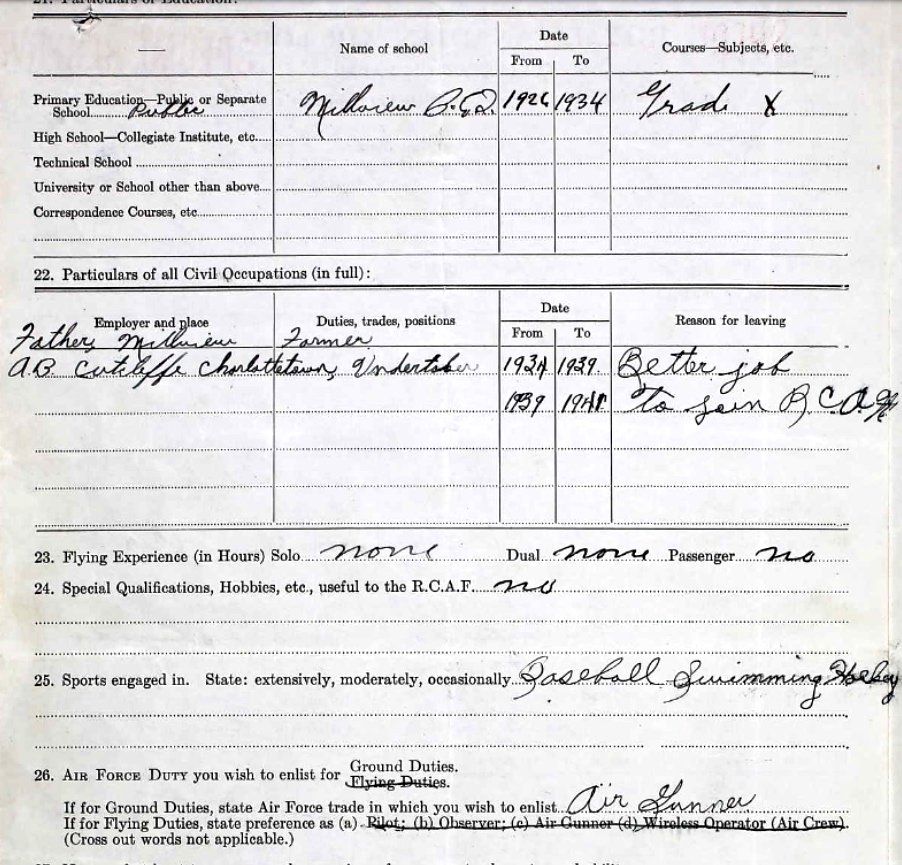 21. Particulars of Education:
Name of school
Date
From To
Courses—Subjects, etc.
Primary Education—Public or Separate
School Public Millview P.E.I. 1926 1934 Grade X
High School—Collegiate Institute, etc.
Technical School
University or School other than above
Correspondence Courses, etc.
22. Particulars of all Civil Occupations (in full):
Employer and place
Duties, trades, positions
Date
From To
Reason for leaving
Father, Millview Farmer
A.B. Cutcliffe Charlottetown, Undertaker 1934 1939 Better job
1939 1941 to join R.C.A.F.
23. Flying Experience (in Hours) Solo none Dual none Passenger no
24. Special Qualifications, Hobbies, etc., useful to the R.C.A.F. no
25. Sports engaged in. State: extensively, moderately, occasionally Baseball Swimming Hockey
26. AIR FORCE DUTY you wish to enlist for Ground Duties.
Flying Duties.
If for Ground Duties, state Air Force trade in which you wish to enlist Air Gunner
If for Flying Duties, state preference as (a) Pilot; (b) Observer; (c) Air Gunner (d) Wireless Operator (Air Crew).
(Cross out words not applicable.)